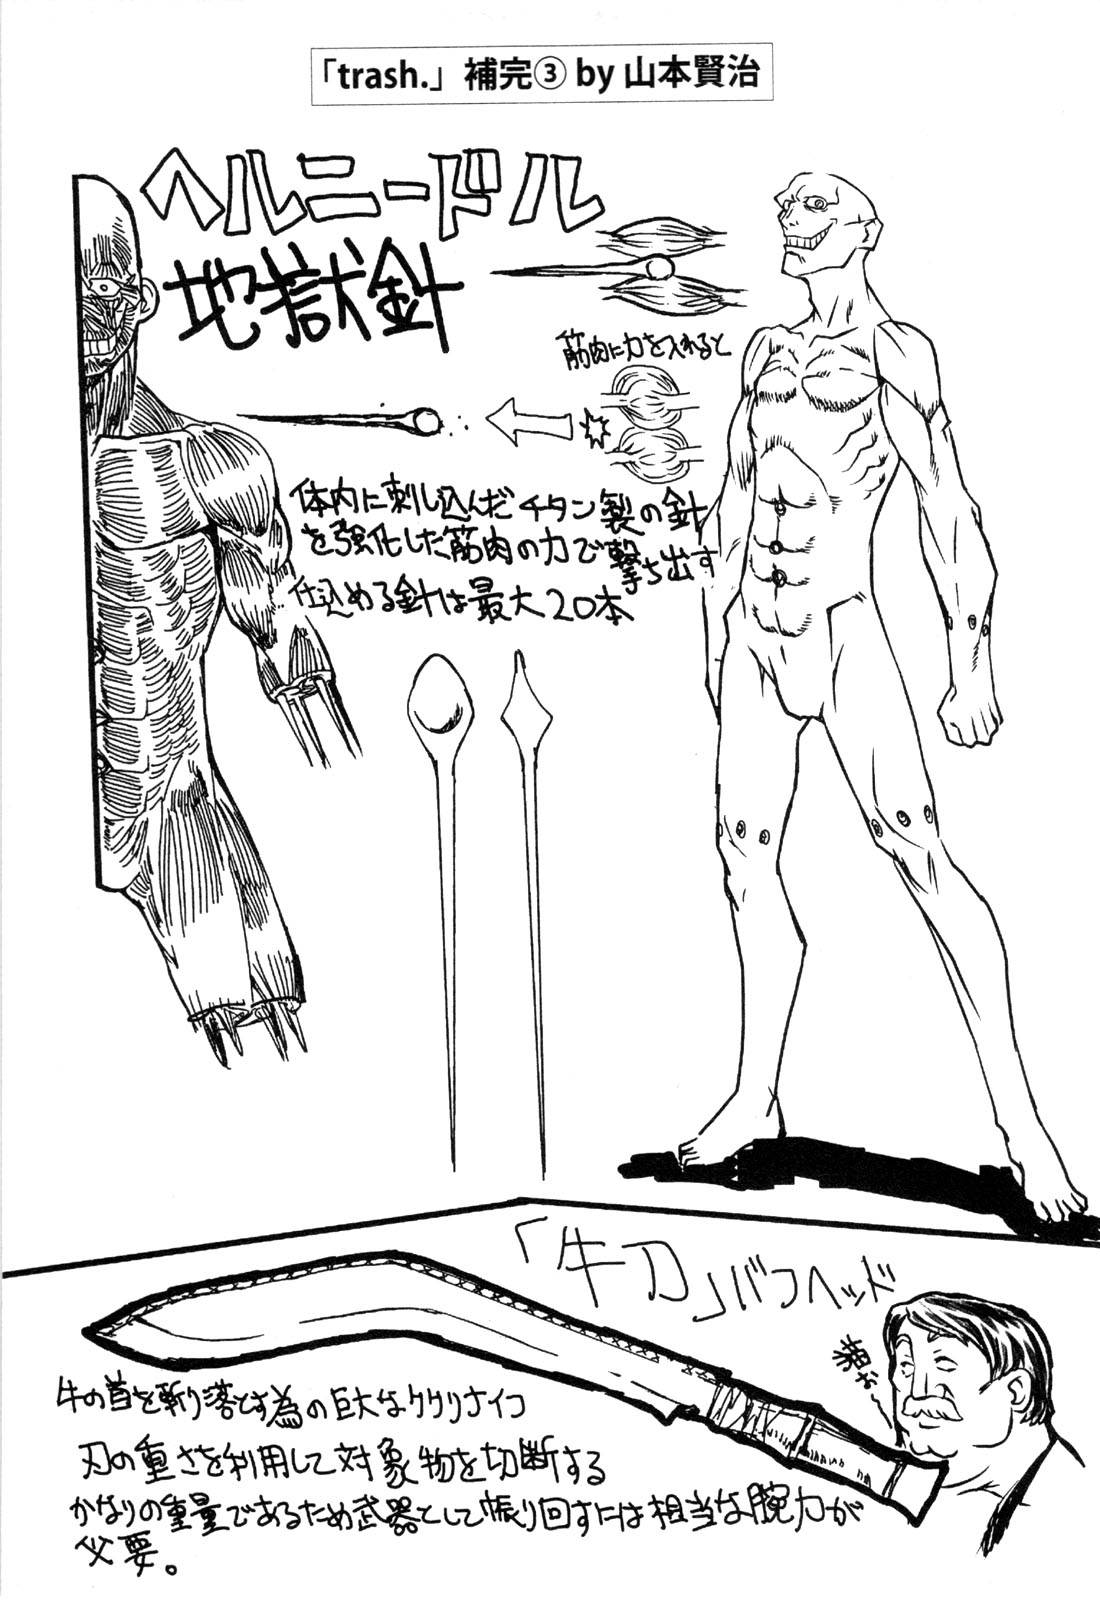 「trash.」補完③ by 山本賢治
ヘルニードル
地獄針
筋肉に力を入れると
体内に刺し込んだチタン製の針
を強化した筋肉の力で撃ち出す
仕込める針は最大20本
「牛刀」バフヘッド
猫お〜
牛の首を斬り落とす為の巨大なククリナイフ
刃の重さを利用して対象物を切断する
かなりの重量であるため武器として振り回すには相当な腕力が
必要。